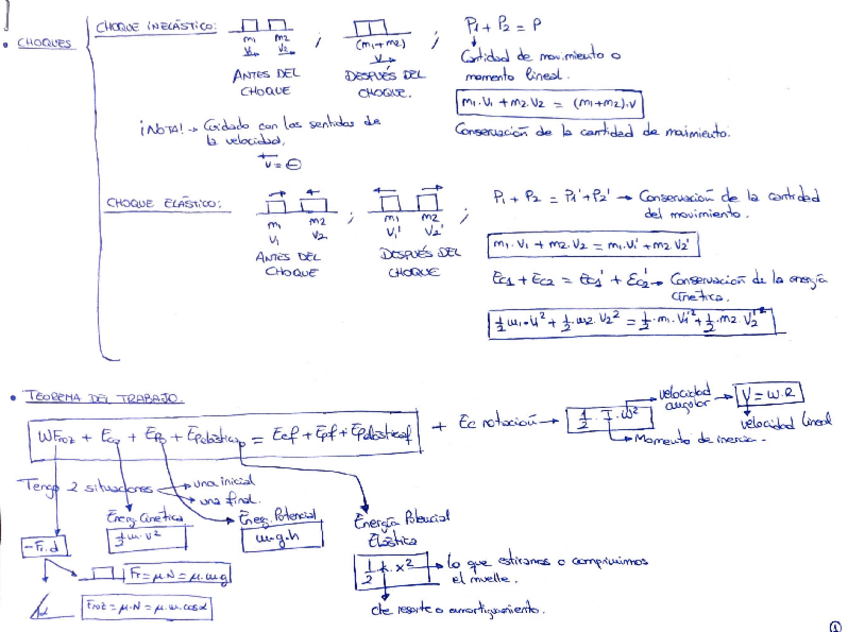 • CHOQUES
CHOQUE INELÁSTICO:
m1 m2
V1 V2
ANTES DEL
CHOQUE
;
(m1+m2)
V
DESPUÉS DEL
CHOQUE.
;
P1 + P2 = P
Cantidad de movimiento o
momento lineal.
m1·V1 + m2·V2 = (m1+m2)·V
Conservación de la cantidad de movimiento.
¡NOTA! → Cuidado con los sentidos de
la velocidad.
V = ⊖
CHOQUE ELÁSTICO:
m1 m2
V1 V2
ANTES DEL
CHOQUE
;
m1 m2
V1' V2'
DESPUÉS DEL
CHOQUE
;
P1 + P2 = P1' + P2' → Conservación de la cantidad
del movimiento.
m1·V1 + m2·V2 = m1·V1' + m2·V2'
Ec1 + Ec2 = Ec1' + Ec2' → Conservación de la energía
cinética.
1/2 m1·V1² + 1/2·m2·V2² = 1/2·m1·V1'² + 1/2·m2·V2'²
• TEOREMA DEL TRABAJO.
WFroz + Eco + Epo + Epelásticao = Ecf + Epf + Epelásticaf + Ec rotación → 1/2·I·ω²
velocidad
angular → V = ω·R
velocidad lineal
Momento de inercia.
Tengo 2 situaciones → una inicial
→ una final.
Energ. Cinética
1/2 m·v²
Energ. Potencial
m·g·h
Energía Potencial
Elástica
1/2 k·x² → lo que estiramos o comprimimos
el muelle.
cte resorte o amortiguamiento.
-Fr·d
Fr = μ·N = μ·m·g
Froz = μ·N = μ·m·cosα
1